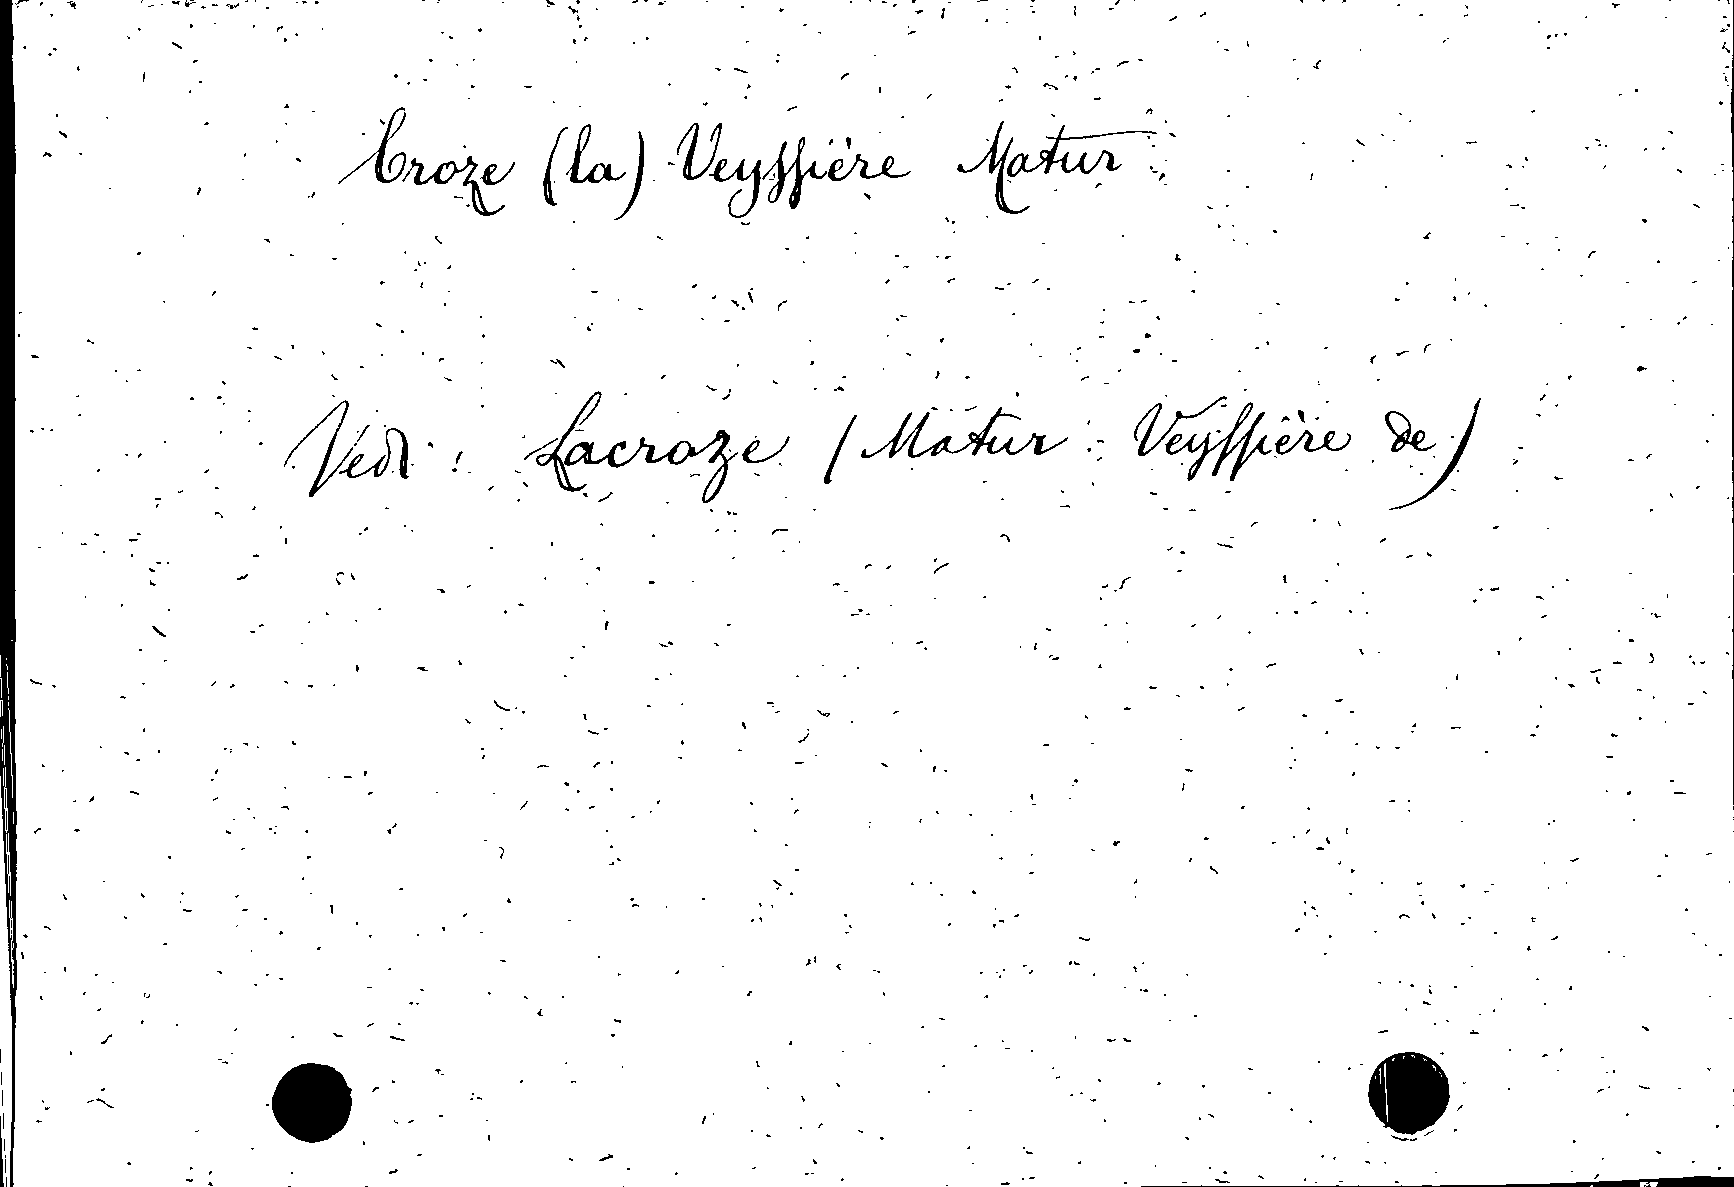 Croze (la) Veyssière Matur
Vedi : Lacroze (Matur Veyssière de)